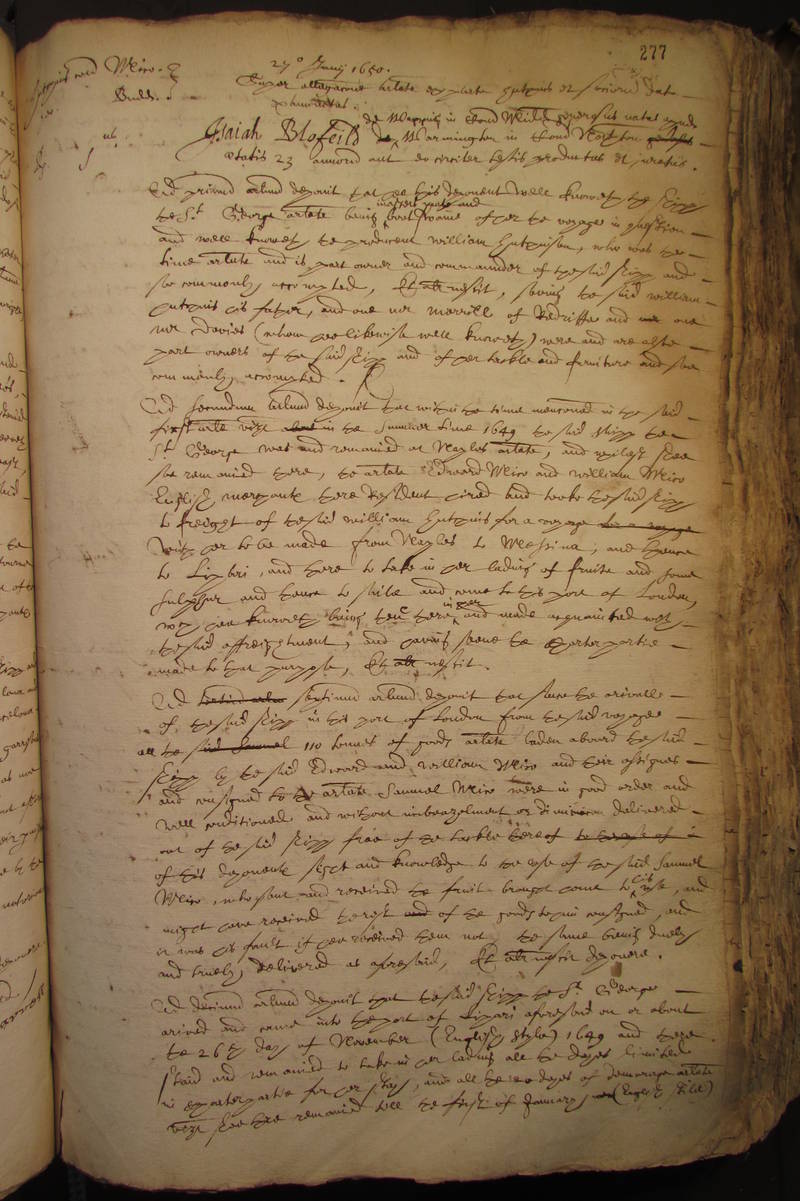 277
27o Junij 1650.
Super allegatione arlate ex parte Hutchins et sociorum dat
Isaiah Blofeild de Warmington in Comd
ætatis 23 annorum aut eo circiter testis productus et juratus.
Ad primum arlum deponit that hee this deponent well knoweth the shipp
the St George arlate being boatswaine of her the voyage in question
and well knoweth the producent William Hutchins, who was the
time arlate and is part owner and commander of the said shipp and
soe commonly accompted, Et alr nescit, saving the said William
Hutchins his father, and one mr Merrill of Redriffe and one
mr Davies (whom hee likewise well knoweth) were and are alsoe
part owners of the said shipp and of her tackle and furniture and soe
commonly accompted.
Ad secundum arlum deponit that within the time mentioned in the said
first arle vizt in the summer time 1649 the said shipp the
St George was and remained at Naples arlate, and whilest shee
soe remained there, the arlate Edward Mico and William Mico
English merchants there resident hired and tooke the said shipp
to freight of the said William Hutchins for a voyage for a voyage
with her to be made from Naples to Messina, and thence
to Lipari, and there to take in her lading of fruite and some
sulphur and thence to saile and come to this port of London,
which hee knoweth being then there in her and made acquainted with
the said affreightment, and having seene the charter partie
made to that purpose, Et alr nescit.
Ad septimum arlum deponit that since the arivall
of the said shipp in this port of London from the said voyage
all the said Samuel 110 tonnes of goods arlate laden aboard the said
shipp by the said Edward and William Mico and their assignes
and consigned to the arlate Samuel Mico were in good order and
well conditioned and without imbeazelment or diminicon delivered
out of the said shipp free of the tackle thereof to the use of
of this deponents sight and knowledge to the use of the said Samuel
Mico, who sent and received the fruit brought home to his use, and
might have received the rest and of the goods to him consigned, and
it was his fault if hee received them not, the same being duely
and truely delivered as aforesaid, Et alr nescit deponere.
Ad decimum arlum deponit that the said shipp the St George
arived and came into the port of Lipari aforesaid on or about
the 26th day of November (English style) 1649 and there
staid and remained to take in her lading all the dayes limited
in charter partie for her stay, and all the dayes of demorage arlate
vizt shee there remained till the first of January (English stile)